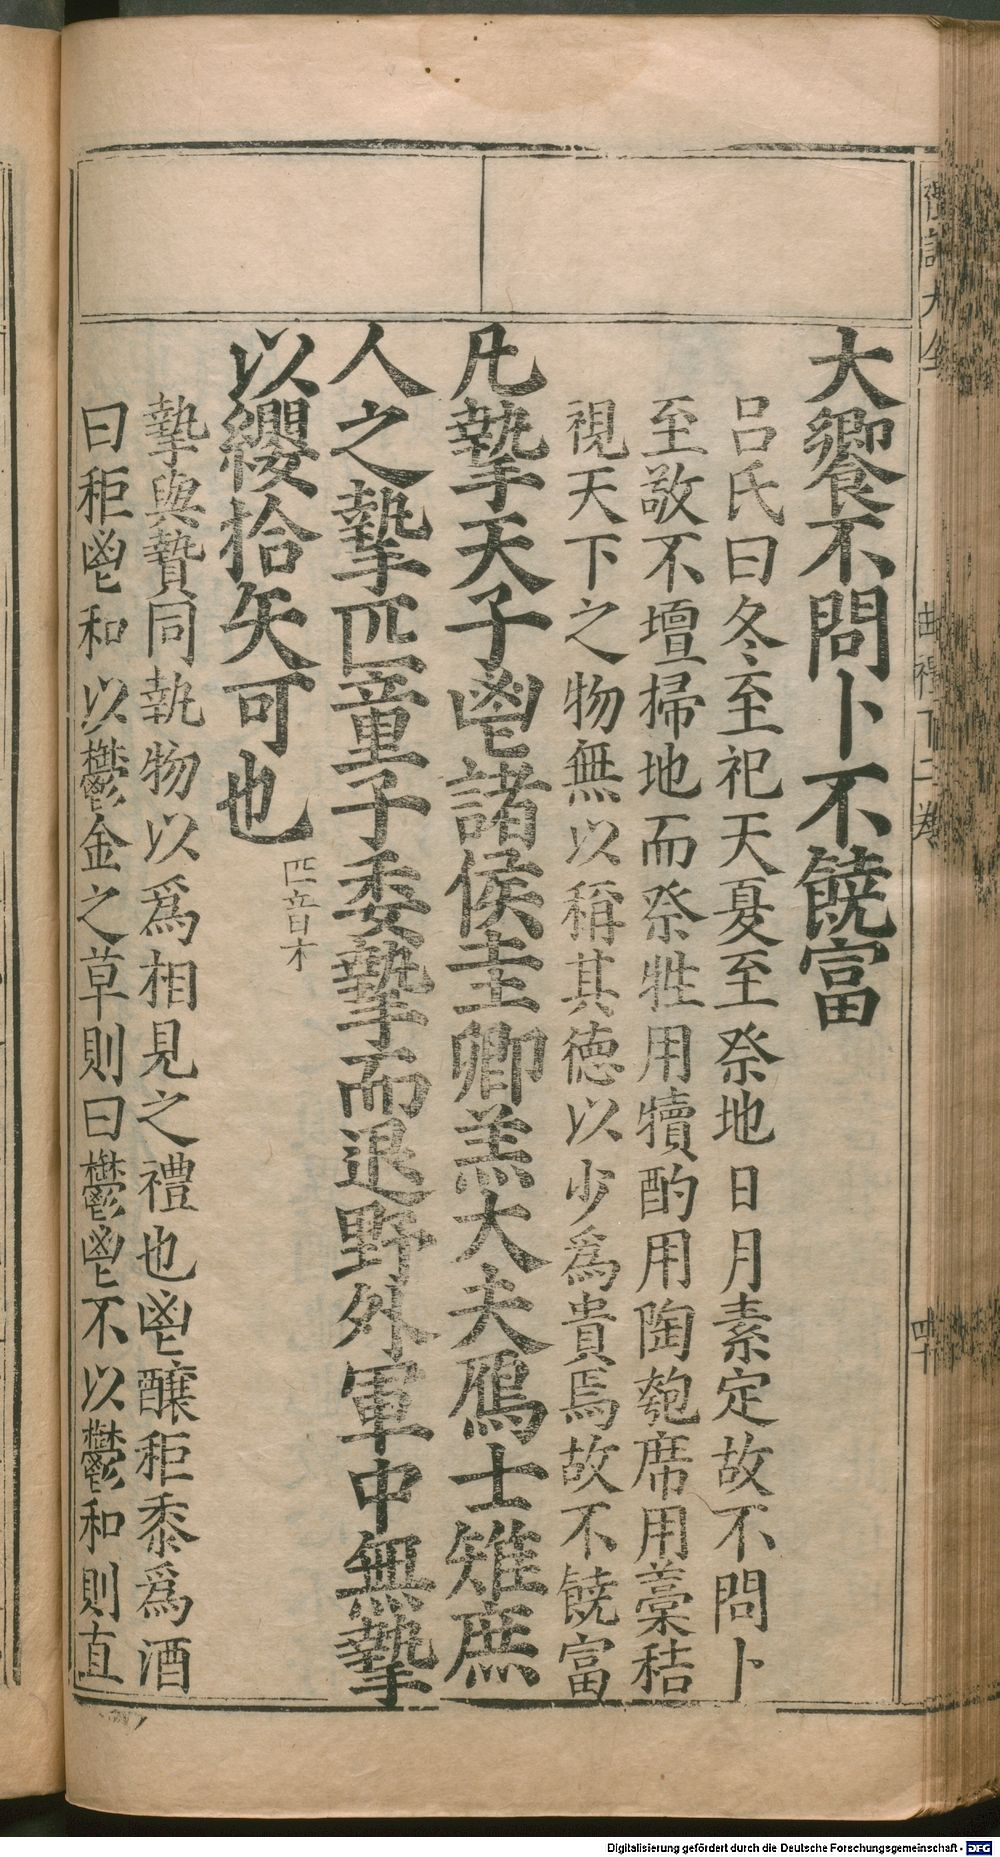 大饗不問卜不饒富
呂氏曰冬至祀天夏至祭地日月素定故不問卜
至敬不壇掃地而祭牲用犢酌用陶匏席用藁秸
視天下之物無以稱其德以少爲貴焉故不饒富
凡摯天子鬯諸侯圭卿羔大夫鴈士雉庶
人之摯匹童子委摯而退野外軍中無摯
以纓拾矢可也
匹音木
摯與贄同執物以爲相見之禮也鬯釀秬黍爲酒
曰秬鬯和以鬱金之草則曰鬱鬯不以鬱和則直
Digitalisierung gefördert durch die Deutsche Forschungsgemeinschaft - DFG